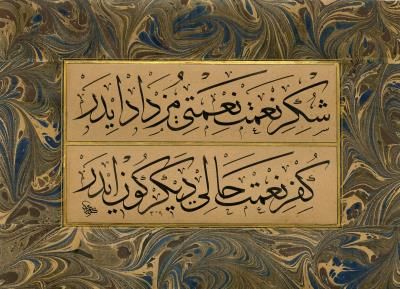 شُكرِ نعمت نعمتى مُزداد ايدر
كُفرِ نعمت حالى ديكركون ايدر